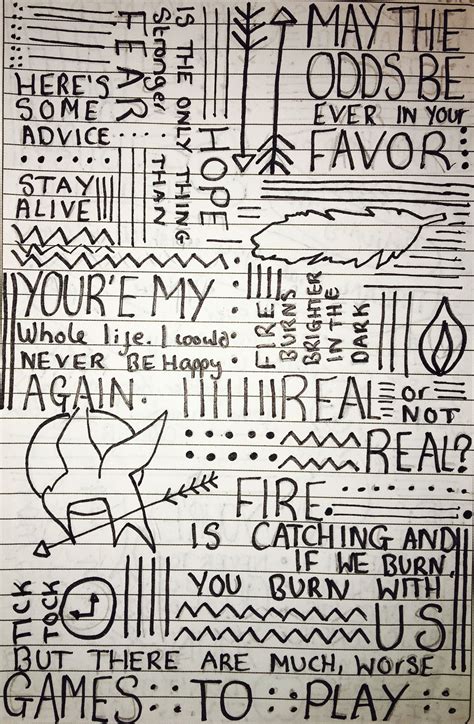 MAY THE
ODDS BE
EVER IN YOUR
FAVOR
HOPE
IS THE ONLY THING
Stronger THAN
FEAR
HERE'S
SOME
ADVICE
STAY
ALIVE
YOUR'E MY
Whole life. I would
NEVER BE Happy
AGAIN.
FIRE
BURNS
BRIGHTER
IN THE
DARK
REAL or
NOT
REAL?
FIRE
IS CATCHING AND
IF WE BURN,
YOU BURN WITH
US
TICK
TOCK
BUT THERE ARE MUCH, WORSE
GAMES TO PLAY